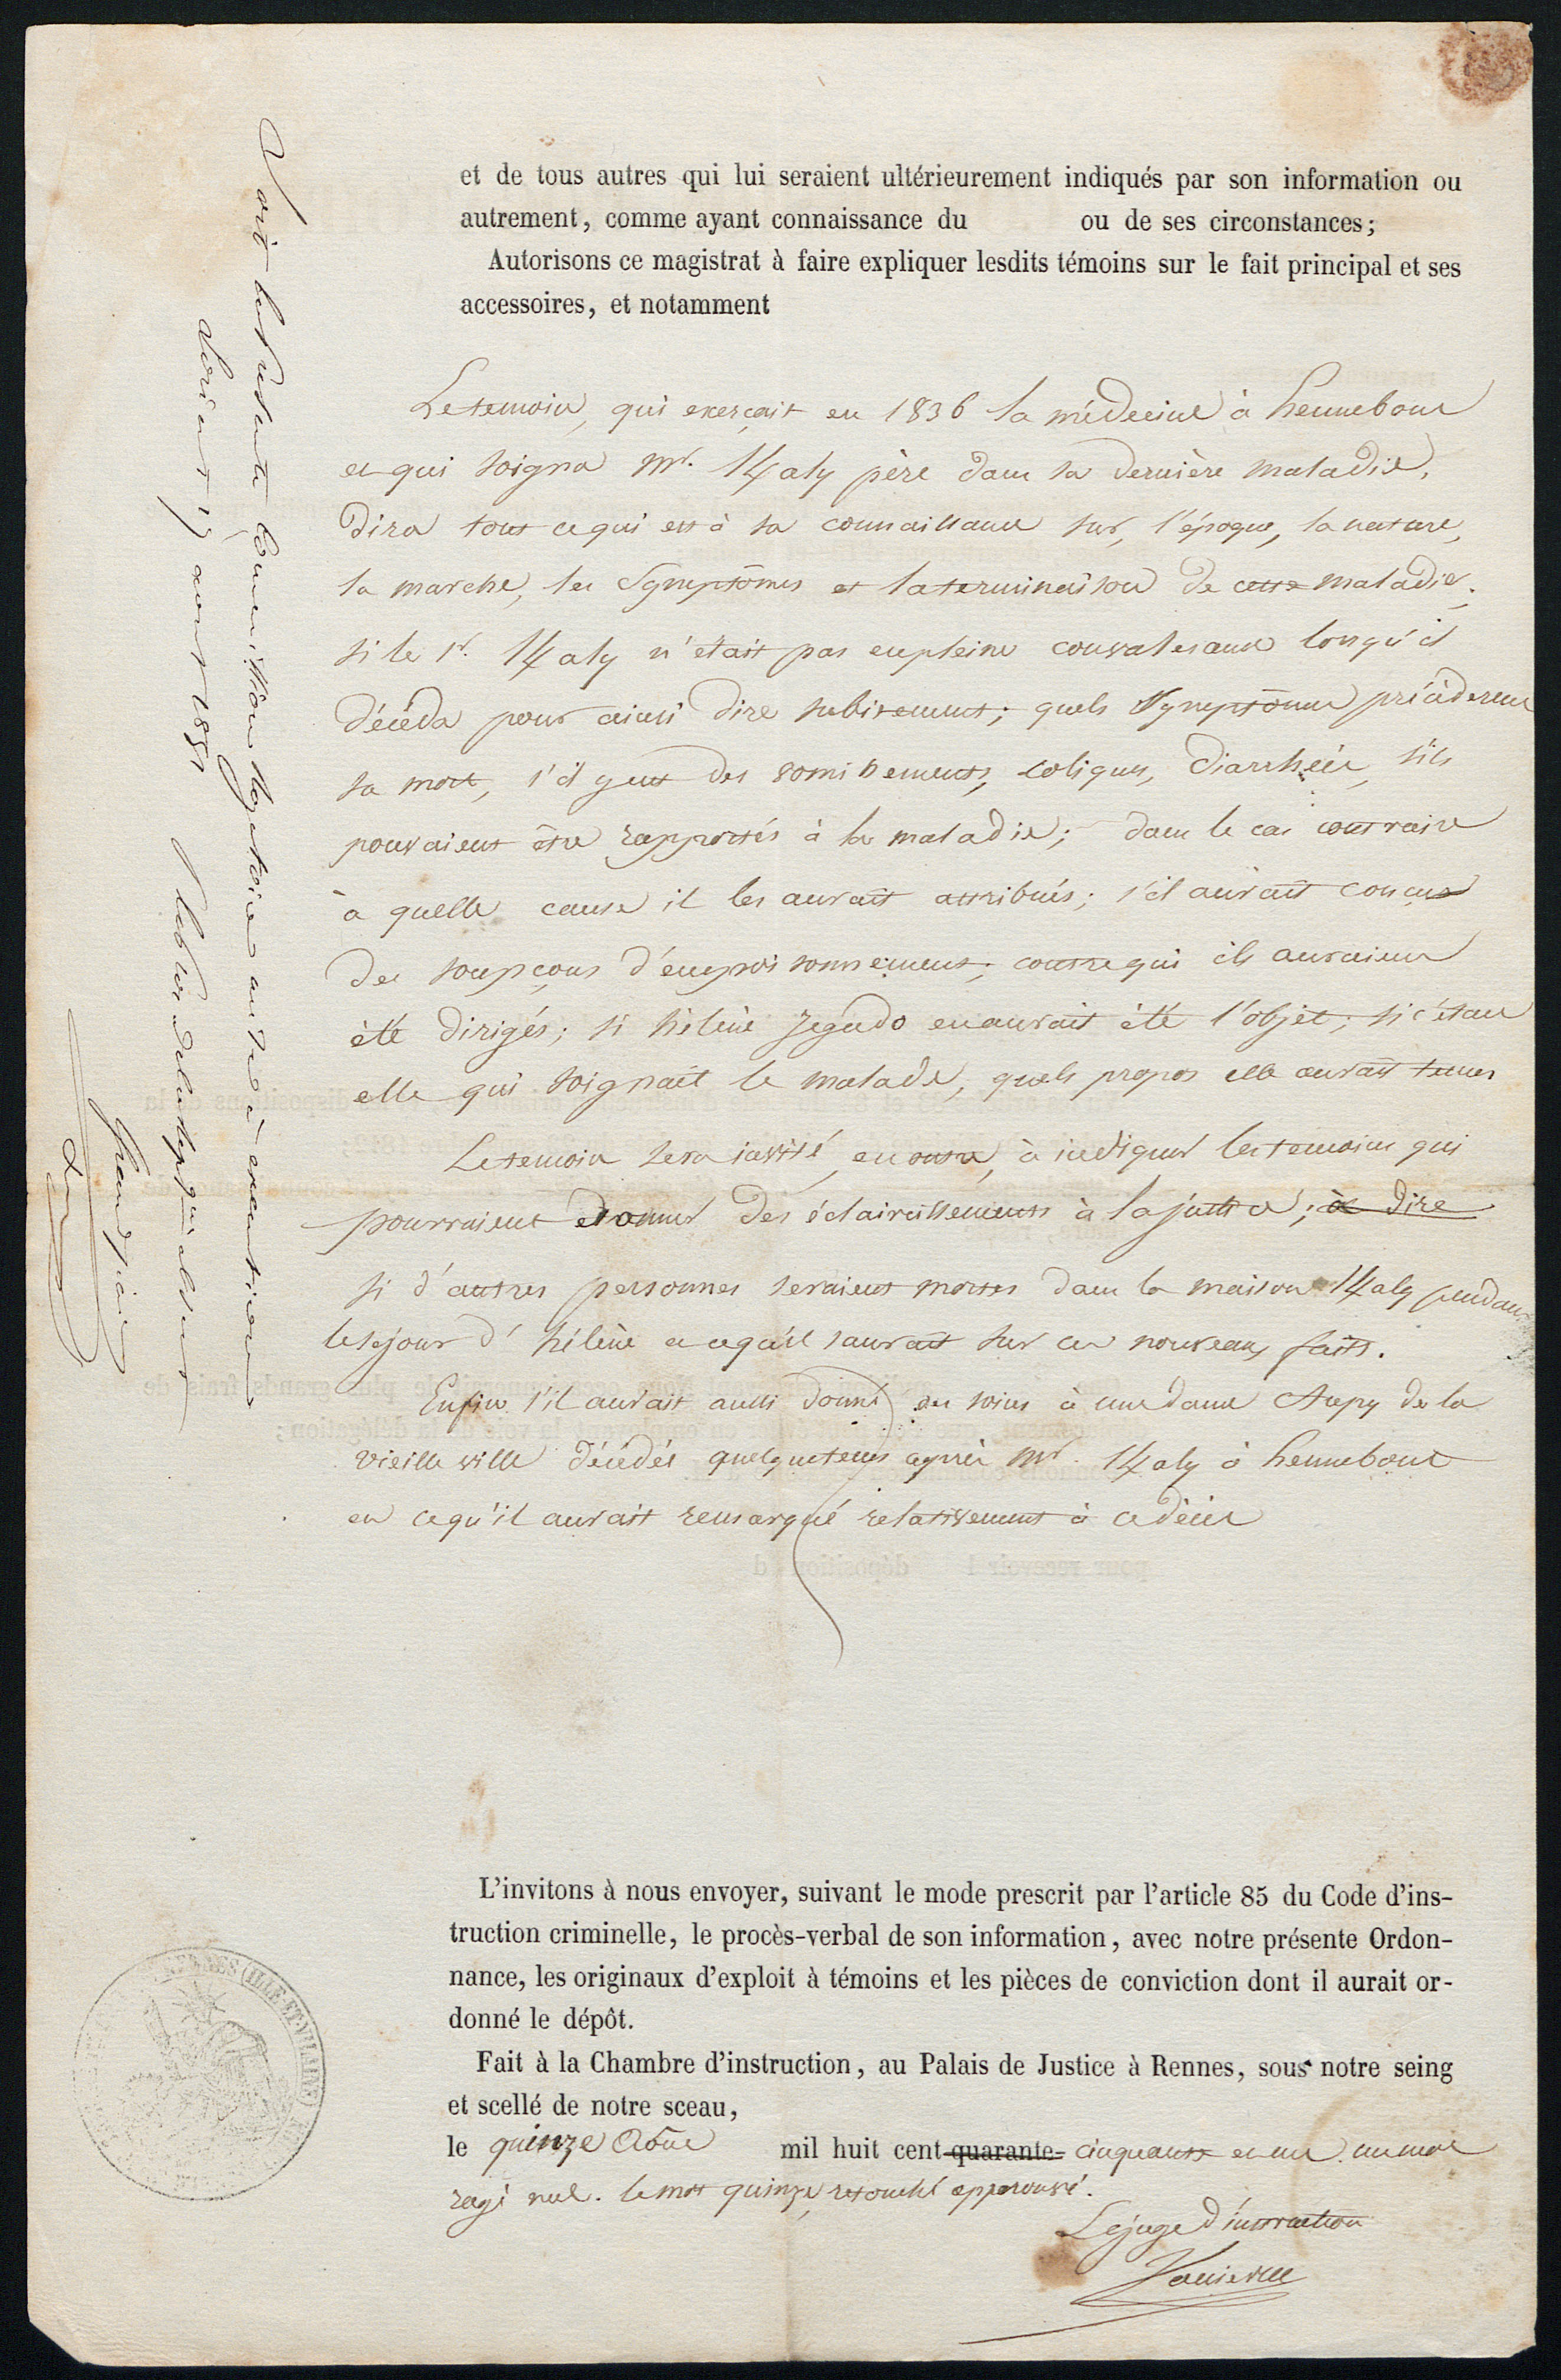 et de tous autres qui lui seraient ultérieurement indiqués par son information ou
autrement, comme ayant connaissance du ou de ses circonstances;
Autorisons ce magistrat à faire expliquer lesdits témoins sur le fait principal et ses
accessoires, et notamment
Le temoin, qui exerçait en 1836 la médecine à hennebont
et qui soigna Mr. Haly père dans sa dernière maladie,
dira tout ce qui est à sa connaissance sur, l'époque, la nature,
la marche, les Symptômes et la terminaison de cette maladie;
si le Sr. Haly n'était pas en pleine convalesance lorsqu'il
décéda pour ainsi dire subitement; quels Symptômes précéderent
sa mort, s'il y eut des vomissements, coliques, diarrhées, s'ils
pouvaient être rapportés à la maladie; dans le cas contraire
à quelle cause il les aurait attribués; s'il aurait conçus
des soupçons d'empoisonnement; contre qui ils auraient
été dirigés; si hélène Jegado en aurait été l'objet; si c'était
elle qui soignait le malade, quels propos elle aurait tenus
Le temoin sera invité, en outre, à indiquer les temoins qui
pourraient donner des éclaircissements à la justice; à dire
si d'autres personnes seraient mortes dans la maison Haly pendant
le séjour d'hélène et ce qu'il saurait sur ces nouveaux faits.
Enfin s'il aurait aussi donné des soins à une dame Aupy de la
vieille ville décédée quelque tems après Mr. Haly à hennebont
et ce qu'il aurait remarqué relativement à ce décès
L'invitons à nous envoyer, suivant le mode prescrit par l'article 85 du Code d'ins-
truction criminelle, le procès-verbal de son information, avec notre présente Ordon-
nance, les originaux d'exploit à témoins et les pièces de conviction dont il aurait or-
donné le dépôt.
Fait à la Chambre d'instruction, au Palais de Justice à Rennes, sous notre seing
et scellé de notre sceau,
le quinze Aôut mil huit cent quarante- cinquante et un. un mot
rayé nul. le mot quinze, retouché approuvé.
Le juge d'instruction
Vannier
la présente Commission rogatoire
Lorient 17 aout 1851
RENNES (ILLE-ET-VILAINE)